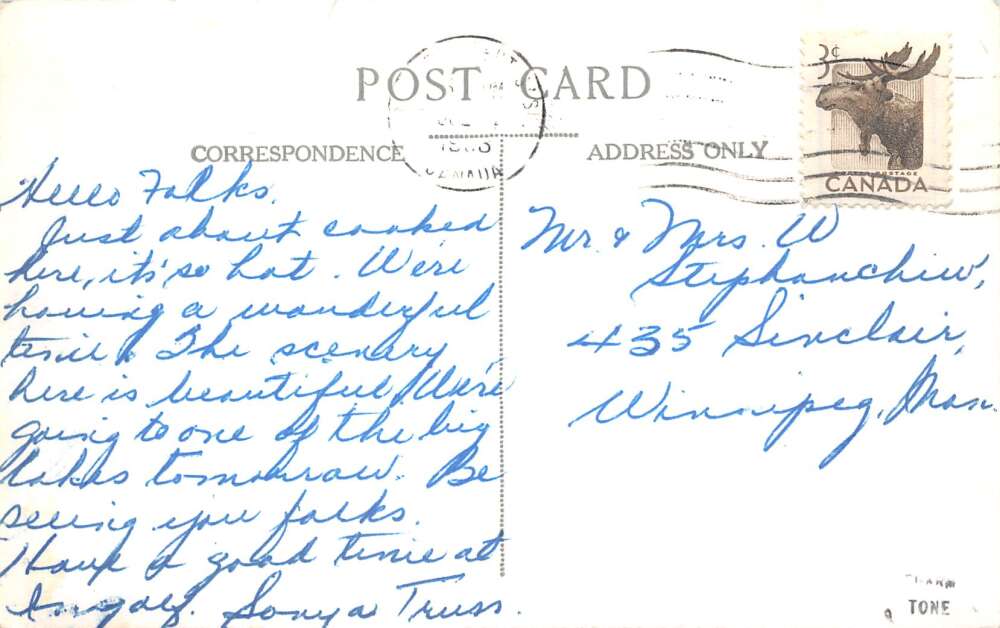 POST CARD
CORRESPONDENCE
ADDRESS ONLY
3¢
POSTES POSTAGE
CANADA
CANADA
Hello Folks.
Just about cooked
here, it's so hot. We're
having a wonderful
time. The scenery
here is beautiful. We're
going to one of the big
lakes tomorrow. Be
seeing you folks.
Have a good time at
Sonya Truss.
Mr. & Mrs. W
Stephanchiw,
435 Sinclair,
Winnipeg, Man.
TONE